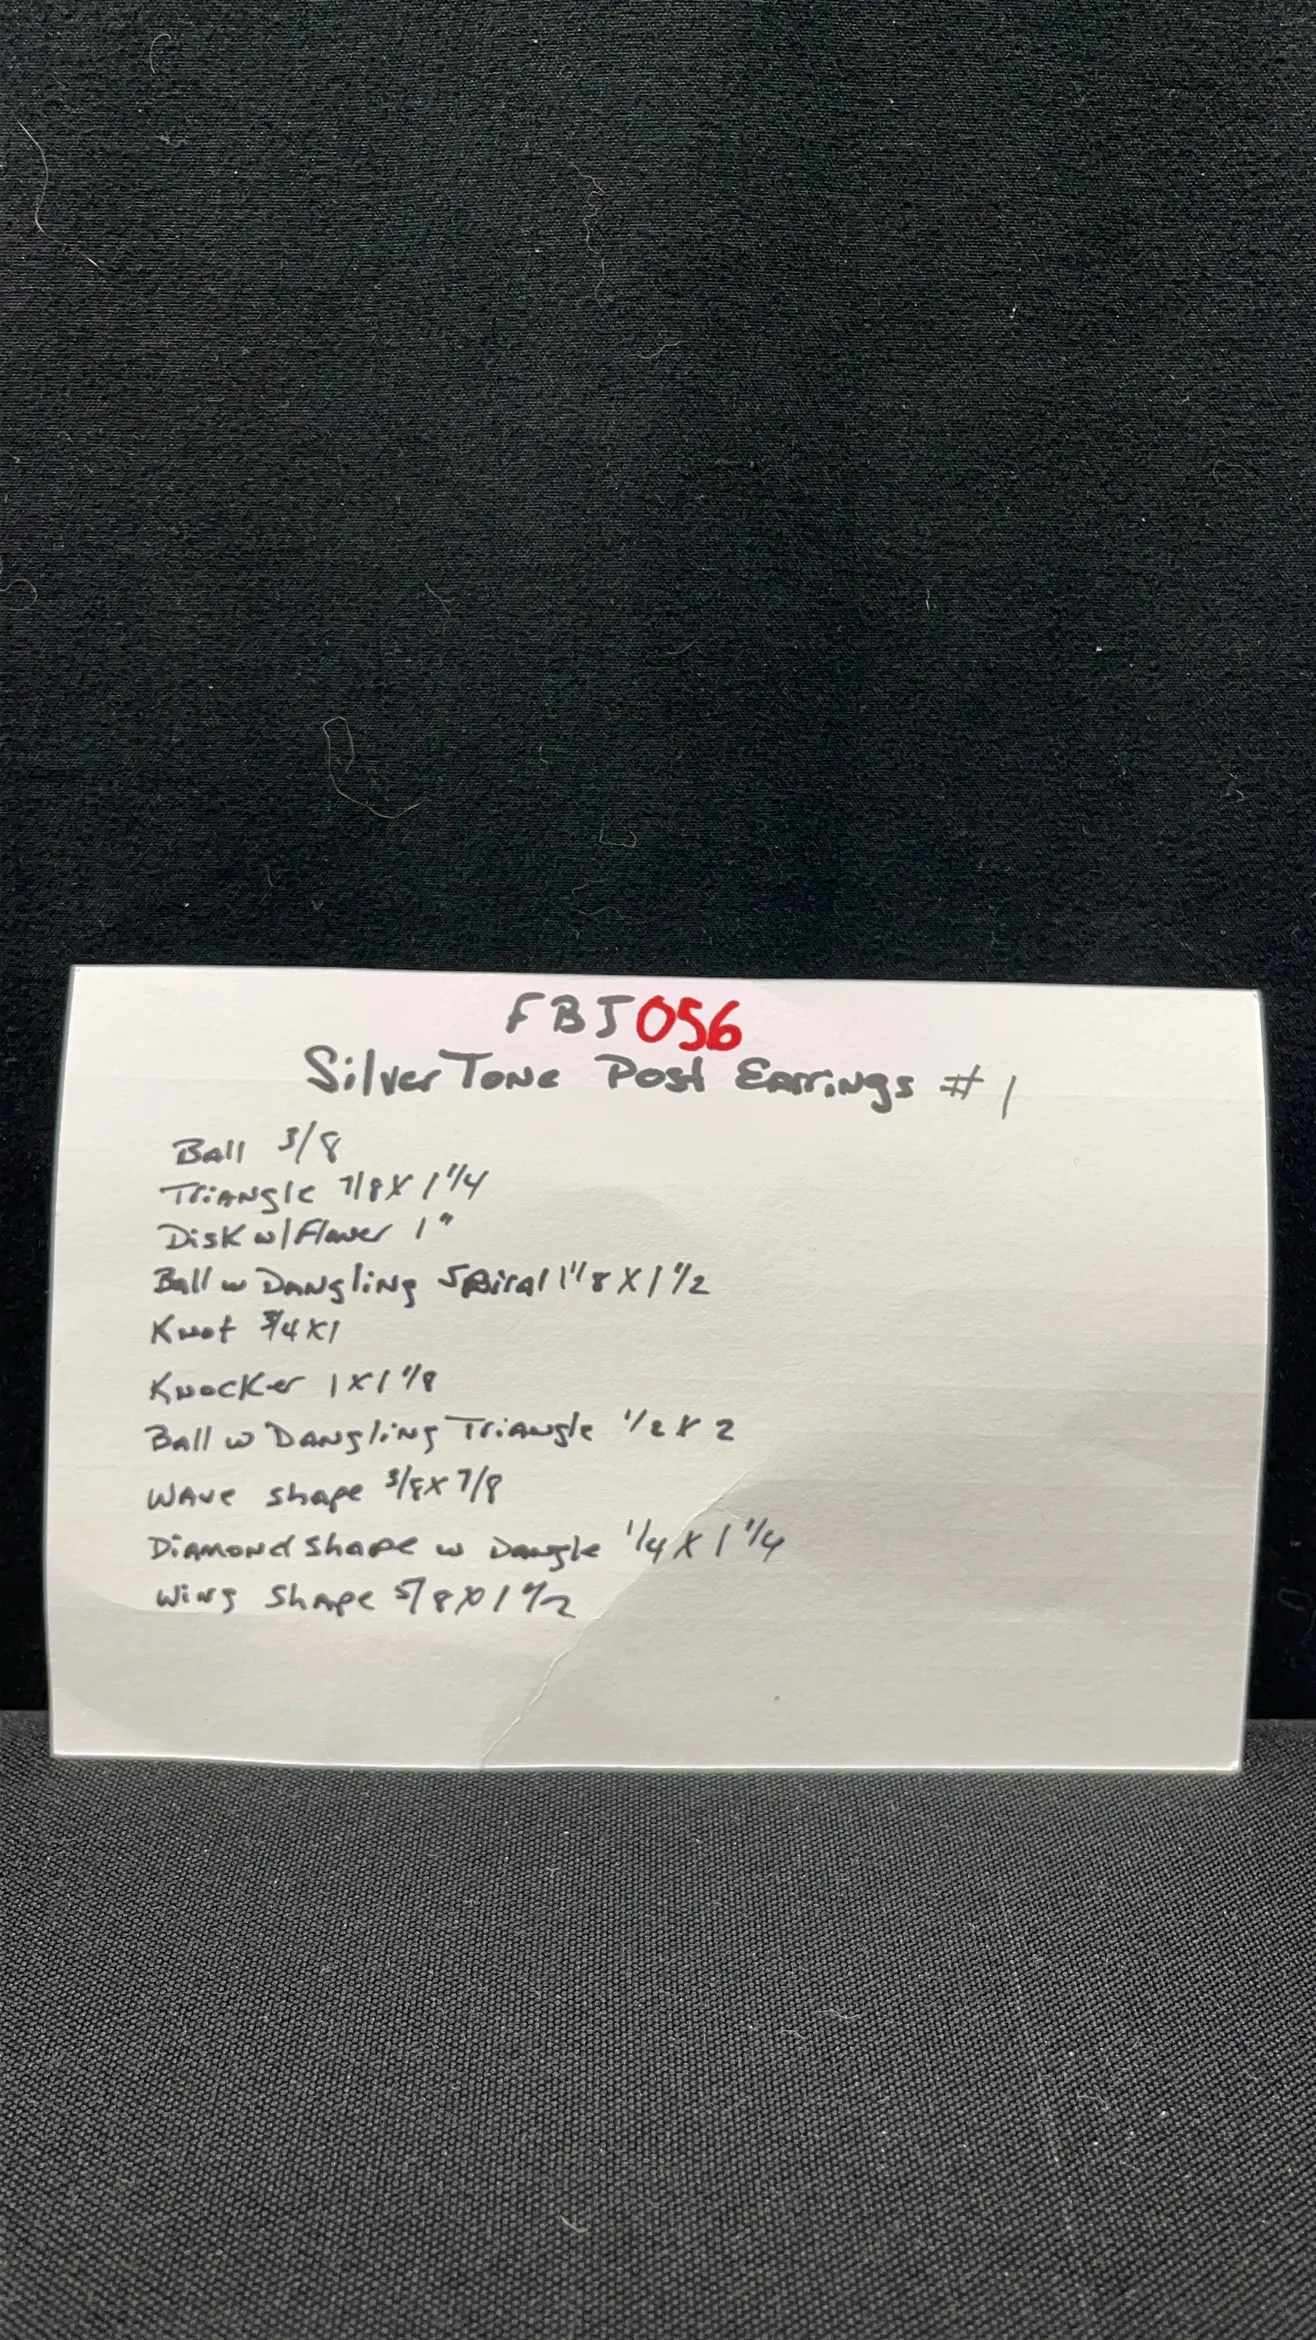 FBJ056
SilverTone Post Earrings #1
Ball 3/8
Triangle 7/8 X 1 1/4
Disk w/Flower 1"
Ball w Dangling Spiral 1 1/8 X 1 1/2
Knot 3/4 X 1
Knocker 1 X 1 1/8
Ball w Dangling Triangle 1/2 X 2
Wave shape 3/8 X 7/8
Diamond shape w Dangle 1/4 X 1 1/4
Wing Shape 5/8 X 1 1/2